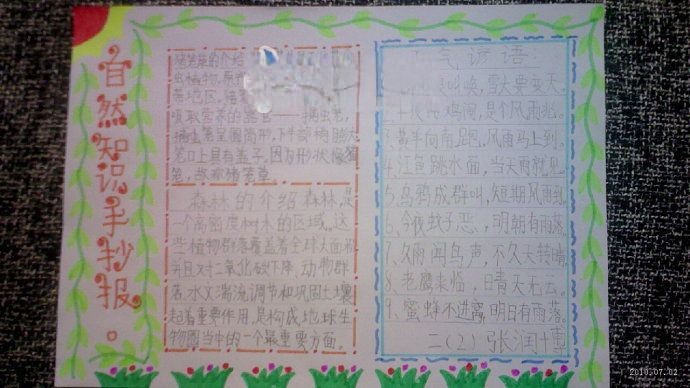 自然知识手抄报。
猪笼草的介绍
虫植物,原
带地区。猪笼
吸取营养的器官——捕虫笼,
捕虫笼呈圆筒形,下半部稍膨大
笼口上具有盖子,因为形状像猪
笼,故称猪笼草。
森林的介绍 森林是
一个高密度树木的区域。这
些植物群落覆盖着全球大面积
并且对二氧化碳下降、动物群
落、水文湍流调节和巩固土壤
起着重要作用,是构成地球生
物圈当中的一个最重要方面。
气谚语
叫唤,雪大要变天。
鸡闹,是个风雨兆。
3、黄牛向南跑,风雨马上到。
4、江鱼跳水面,当天雨就见
5、乌鸦成群叫,短期风雨到
6、今夜蚊子恶,明朝有雨落。
7、久雨闻鸟声,不久天转晴
8、老鹰来临,日晴天无云。
9、蜜蜂不进离,明日有雨落。
二(2) 张润
2010.07.02